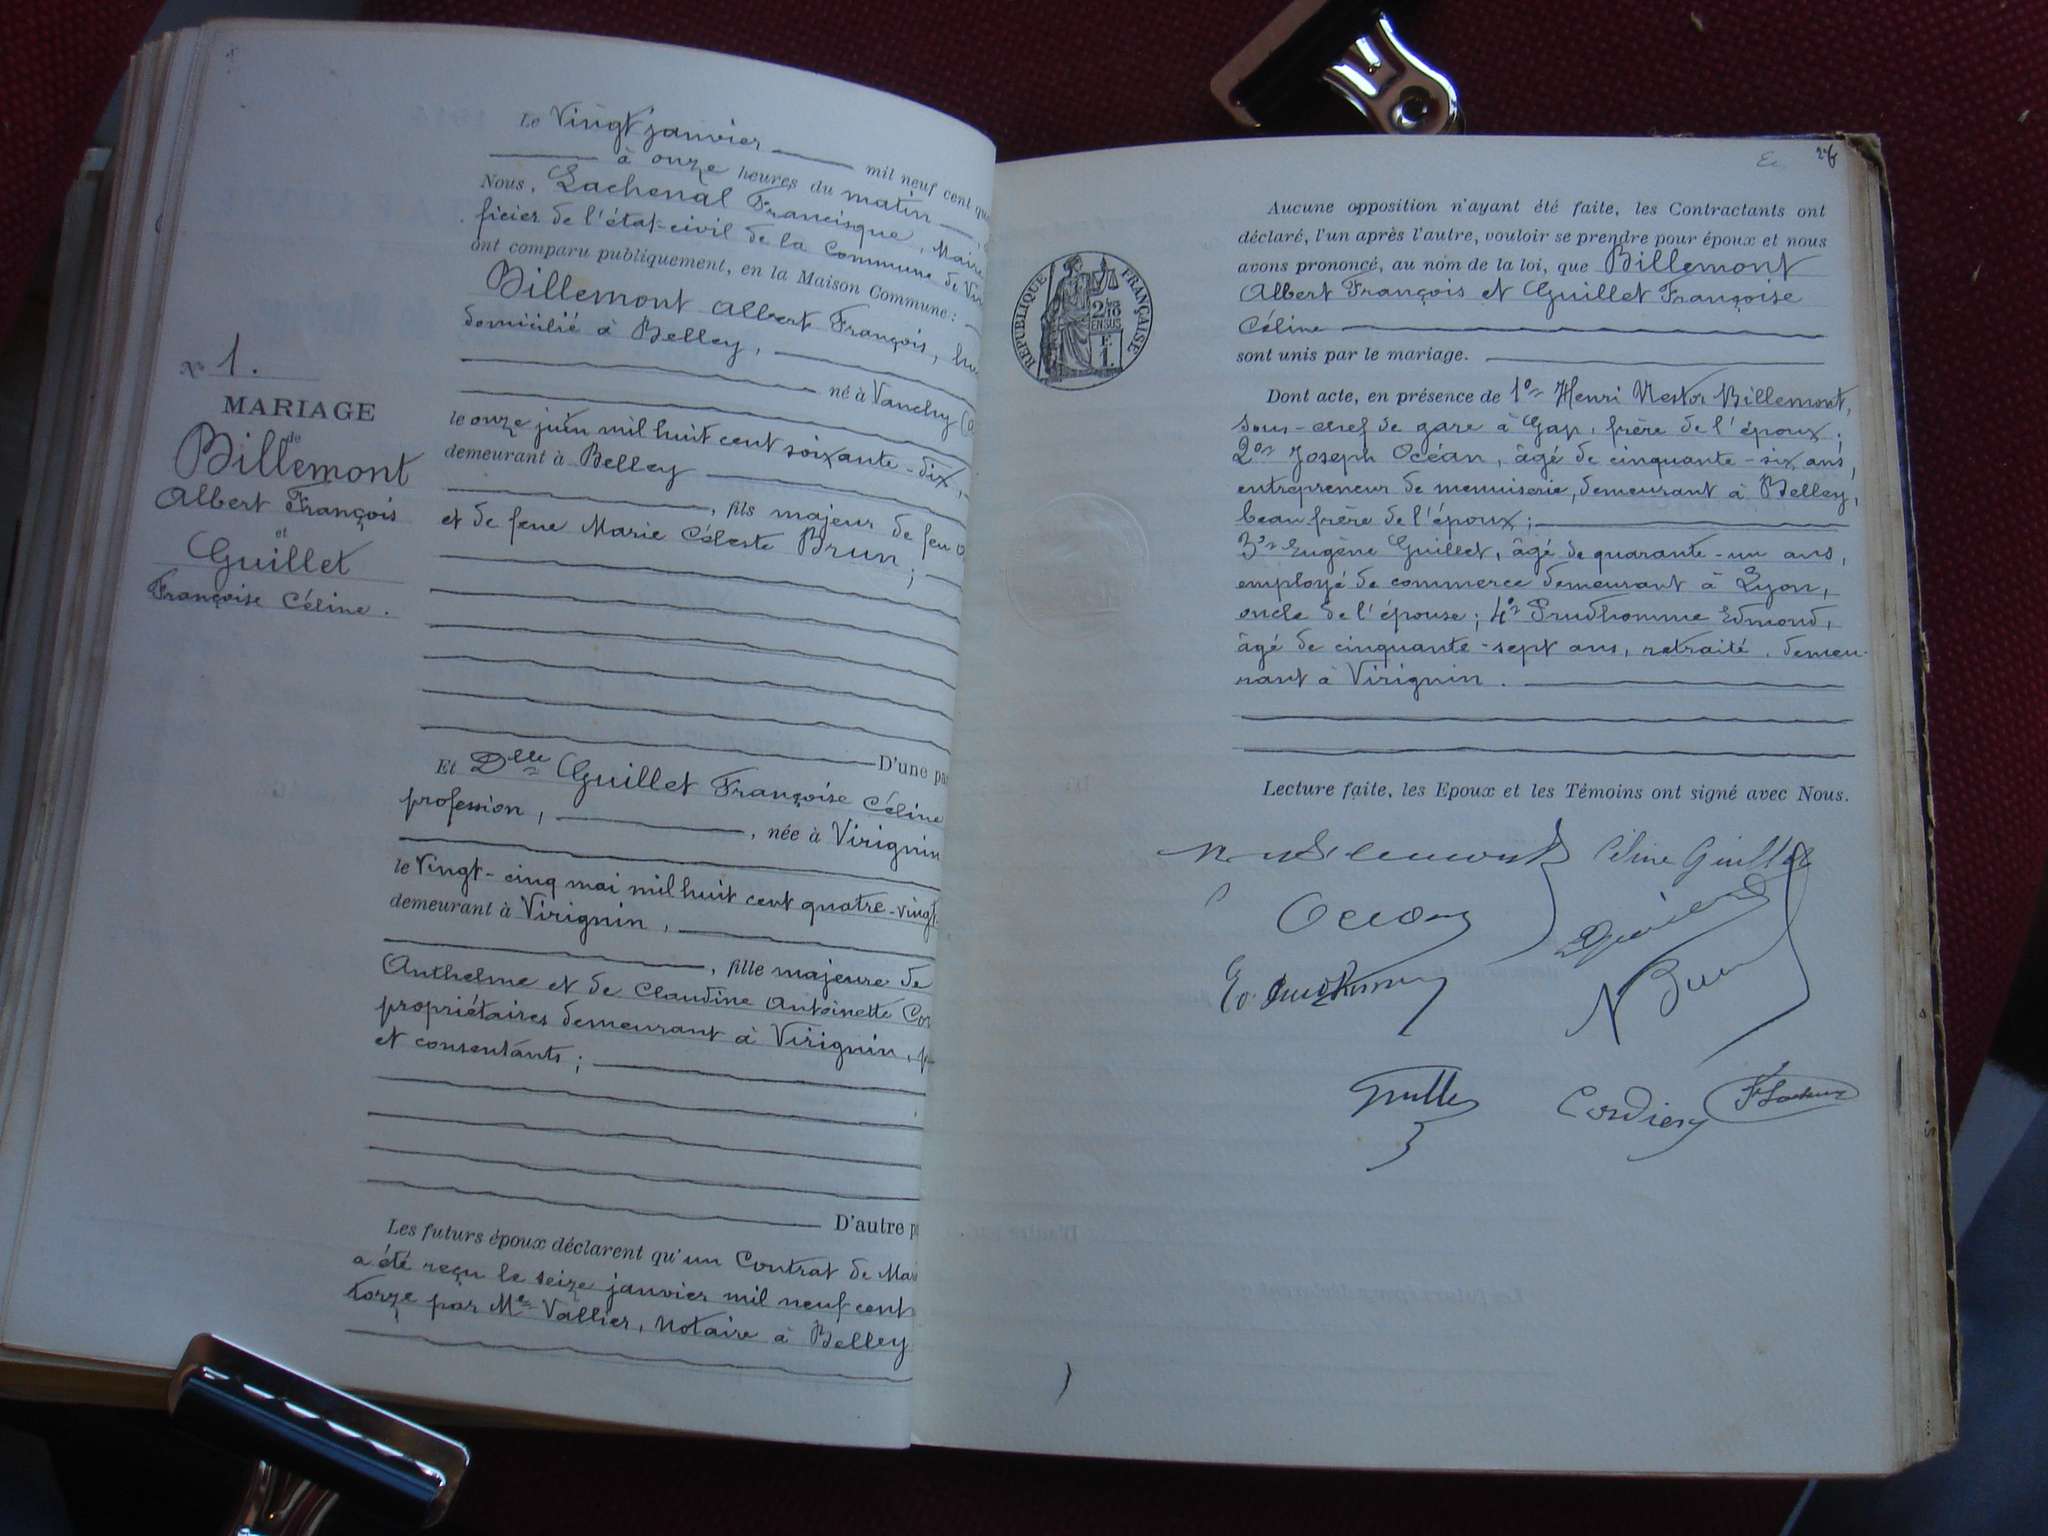 Le Vingt janvier mil neuf cent
à onze heures du matin
Nous, Lachenal Francisque, Maire
ficier de l'état-civil de la commune de Vir
ont comparu publiquement, en la Maison Commune :
Billemont Albert François,
domicilié à Belley,
né à Vanchy
le onze juin mil huit cent soixante-dix,
demeurant à Belley
, fils majeur de feu
et de feue Marie Céleste Brun ;
D'une pa
Et Delle Guillet Françoise Céline
profession, , née à Virignin
le Vingt-cinq mai mil huit cent quatre-vingt
demeurant à Virignin,
, fille majeure de
Anthelme et de Claudine Antoinette Cor
propriétaires demeurant à Virignin,
et consentants ;
D'autre p
Les futurs époux déclarent qu'un Contrat de Mar
a été reçu le seize janvier mil neuf cent
torze par Me Vallier, Notaire à Belley
No 1.
MARIAGE
de
Billemont
Albert François
et
Guillet
Françoise Céline.
Aucune opposition n'ayant été faite, les Contractants ont
déclaré, l'un après l'autre, vouloir se prendre pour époux et nous
avons prononcé, au nom de la loi, que Billemont
Albert François et Guillet Françoise
Céline
sont unis par le mariage.
Dont acte, en présence de 1o Henri Nestor Billemont,
sous-chef de gare à Gap, frère de l'époux ;
2o Joseph Océan, âgé de cinquante-six ans,
entrepreneur de menuiserie, demeurant à Belley,
beau frère de l'époux ;
3o Eugène Guillet, âgé de quarante-un ans,
employé de commerce demeurant à Lyon,
oncle de l'épouse ; 4o Prudhomme Edmond,
âgé de cinquante-sept ans, retraité, demeu-
rant à Virignin.
Lecture faite, les Epoux et les Témoins ont signé avec Nous.
Céline Guillet
Océan
Brun
Guillet
Cordier
RÉPUBLIQUE FRANÇAISE
2/10
EN SUS
F.
1.